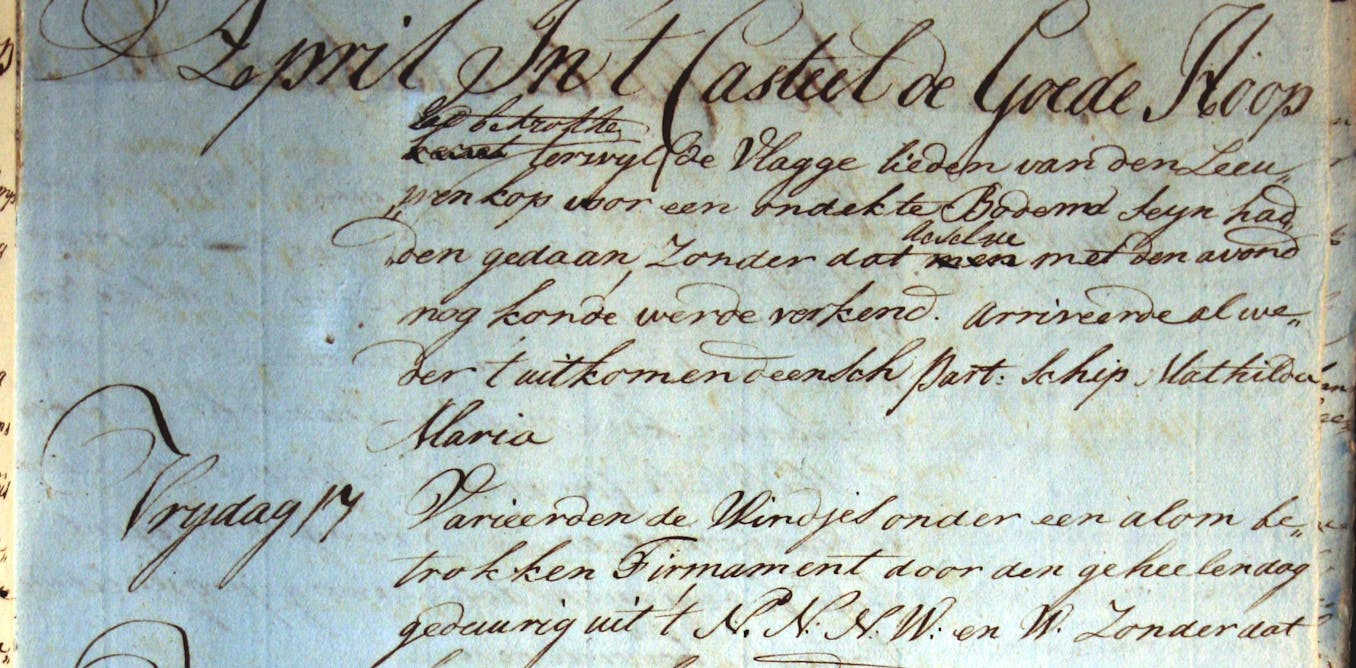 April In 't Casteel de Goede Hoop
terwyl de Vlagge lieden van den Leeu„
„wen kop voor een ondekte Bodemd seyn had„
„den gedaan, Zonder dat deselve met den avond
nog konde werde verkend. arriveerde al we„
der 't uitkomend deensch Part: schip Mathilda
Maria
Vrydag 17 Varieerden de Windjes onder een alom be„
trokken Firmament door den geheelen dag
geduurig uit 't N. N. N. W. en W. Zonder dat